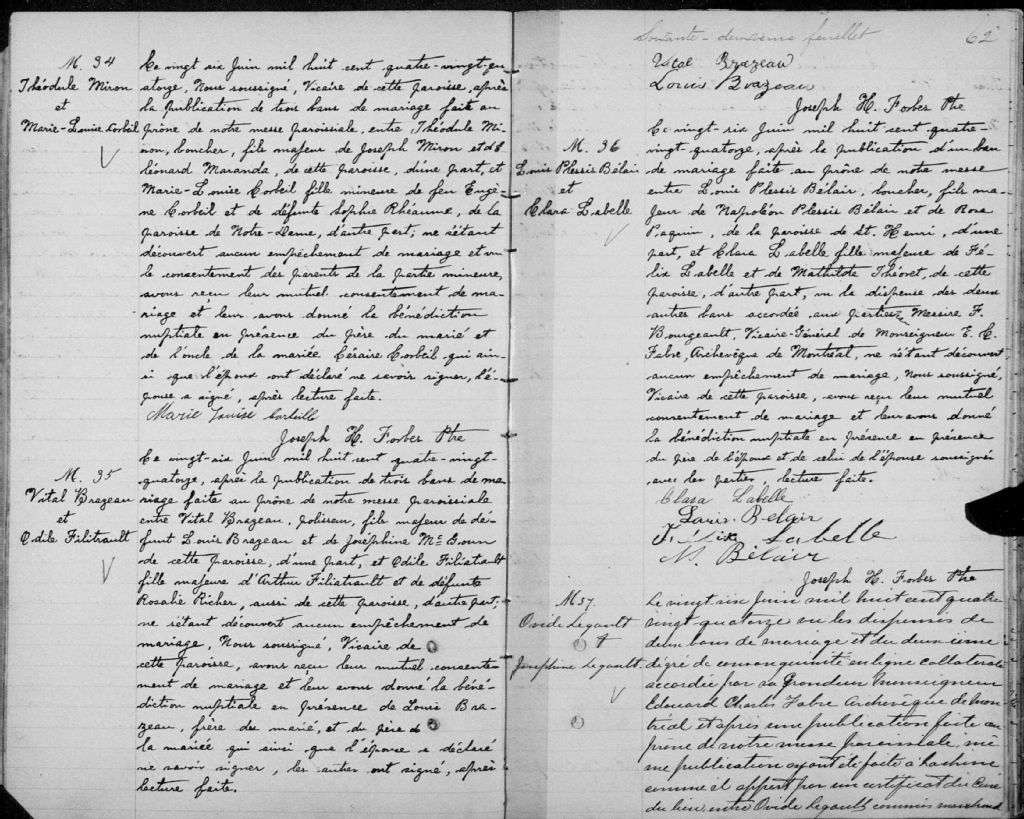 M. 34
Théodule Miron
et
Marie-Louise Corbeil
Le vingt six Juin mil huit cent quatre-vingt-qu
atorze, Nous soussigné, Vicaire de cette paroisse, après
la publication de trois bans de mariage faite au
prône de notre messe paroissiale, entre Théodule Mi-
ron, boucher, fils majeur de Joseph Miron et d'E
léonard Maranda, de cette paroisse, d'une part, et
Marie-Louise Corbeil fille mineure de feu Eugè-
ne Corbeil et de défunte Sophie Rhéaume, de la
paroisse de Notre-Dame, d'autre part; ne s'étant
découvert aucun empêchement de mariage et vu
le consentement des parents de la partie mineure,
avons reçu leur mutuel consentement de ma-
riage et leur avons donné la bénédiction
nuptiale en présence du père du marié et
de l'oncle de la mariée Césaire Corbeil, qui ain-
si que l'époux ont déclaré ne savoir signer, l'é-
pouse a signé, après lecture faite.
Marie Louise Corbeille
Joseph H. Forbes Ptre
M. 35
Vital Brazeau
et
Odile Filitrault
Le vingt-six Juin mil huit cent quatre-vingt-
quatorze, après la publication de trois bans de ma
riage faite au prône de notre messe paroissiale
entre Vital Brazeau, polisseur, fils majeur de dé-
funt Louis Brazeau et de Joséphine Mc Goun
de cette paroisse, d'une part, et Odile Filiatrault
fille majeure d'Arthur Filiatrault et de défunte
Rosalie Richer, aussi de cette paroisse, d'autre part;
ne s'étant découvert aucun empêchement de
mariage, Nous soussigné, Vicaire de
cette paroisse, avons reçu leur mutuel consente-
ment de mariage et leur avons donné la béné-
diction nuptiale en présence de Louis Bra-
zeau, frère du marié, et du père de
la mariée qui ainsi que l'épouse a déclaré
ne savoir signer, les autres ont signé, après
lecture faite.
Soixante-deuxième feuillet 62
Vital Brazeau
Louis Brazeau
Joseph H. Forbes Ptre
M. 36
Louis Plessis Bélair
et
Clara Labelle
Le vingt-six Juin mil huit cent quatre-
vingt-quatorze, après la publication d'un ban
de mariage faite au prône de notre messe
entre Louis Plessis Bélair, boucher, fils ma-
jeur de Napoléon Plessis Bélair et de Rosa
Paquin, de la paroisse de St. Henri, d'une
part, et Clara Labelle fille majeure de Fé-
lix Labelle et de Mathilde Théoret, de cette
paroisse, d'autre part, vu la dispense des deux
autres bans accordée aux parties Messire F.
Bourgeault, Vicaire-Général de Monseigneur E. C.
Fabre, Archevêque de Montréal, ne s'étant découvert
aucun empêchement de mariage, Nous soussigné,
Vicaire de cette paroisse, avons reçu leur mutuel
consentement de mariage et leur avons donné
la bénédiction nuptiale en présence en présence
du père de l'époux et de celui de l'épouse soussignés
avec les parties, lecture faite.
Clara Labelle
Louis Belair
Félix Labelle
N. Bélair
Joseph H. Forbes Ptre
M 37.
Ovide Legault
et
Josephine Legault
Le vingt six Juin mil huit cent quatre
vingt quatorze vu les dispenses de
deux bans de mariage et du deuxième
dégré de consanguinité en ligne collaterale
accordée par sa Grandeur Monseigneur
Edouard Charles Fabre Archevêque de Mon
tréal et après une publication faite au
prône de notre messe paroissiale, mê
me publication ayant été faite à Lachine
comme il appert par un certificat du Curé
du lieu, entre Ovide Legault commis marchand